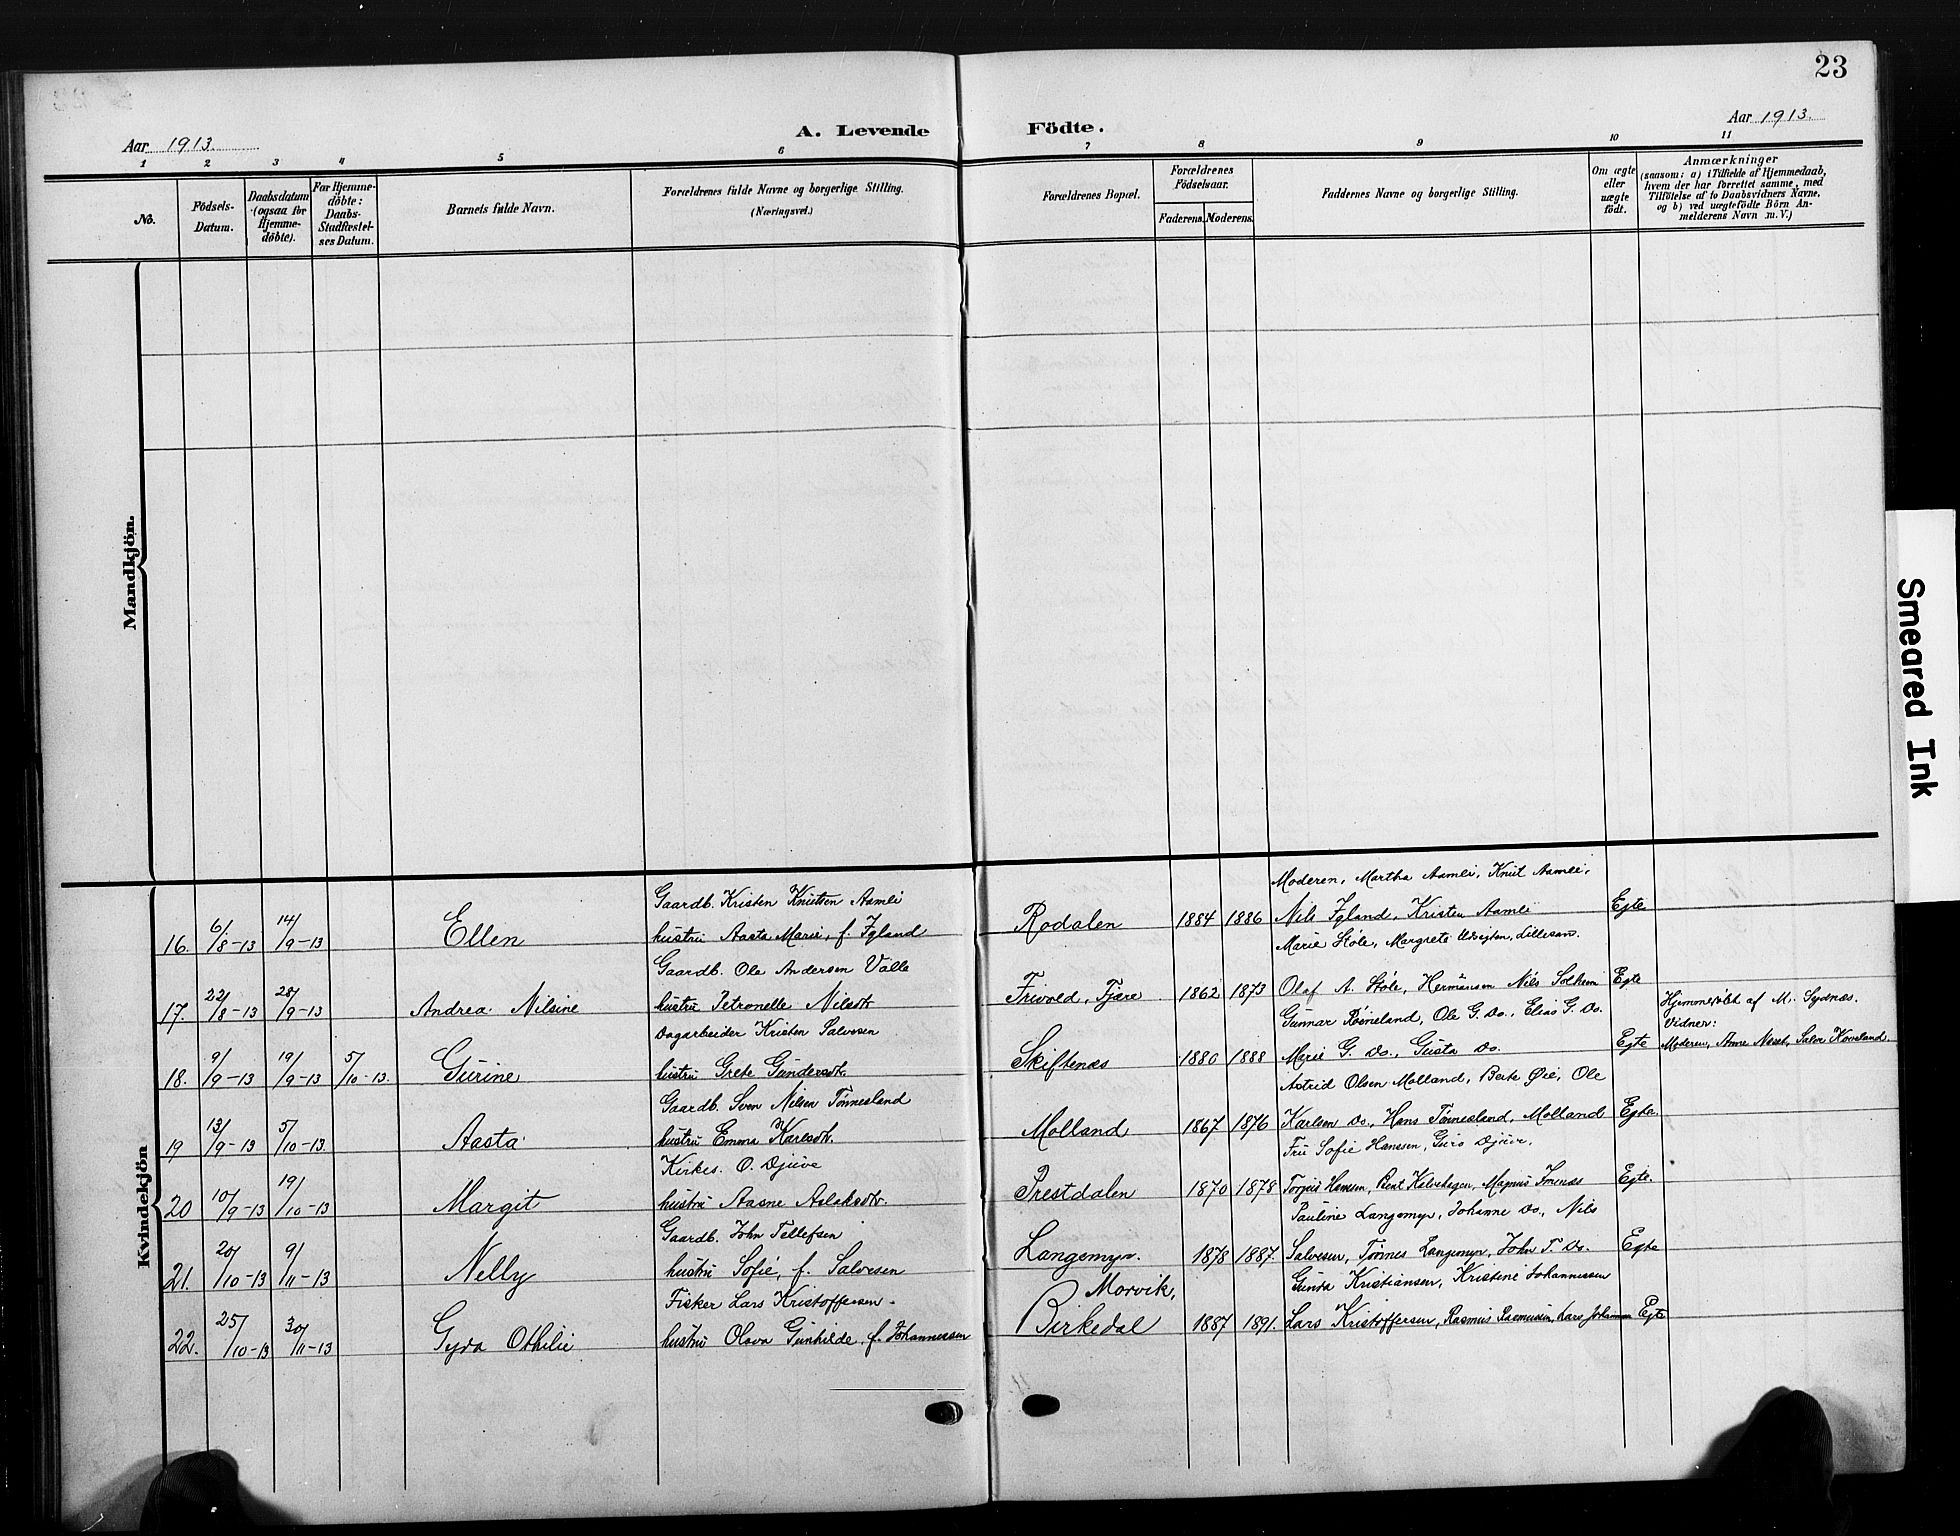 23
A. Levende Födte.
Aar 1913.
Aar 1913.
1 2 3 4 5 6 7 8 9 10 11
No.
Födsels-Datum.
Daabsdatum (ogsaa for Hjemme-döbte).
For Hjemme-döbte: Daabs-Stadfæstel-ses Datum.
Barnets fulde Navn.
Forældrenes fulde Navne og borgerlige Stilling.
(Næringsvei.)
Forældrenes Bopæl.
Forældrenes Födselsaar.
Faderens. Moderens.
Faddernes Navne og borgerlige Stilling.
Om ægte eller uægte födt.
Anmærkninger
(saasom: a) i Tilfælde af Hjemmedaab,
hvem der har forrettet samme, med
Tilföielse af to Daabsvidners Navne,
og b) ved uægtefödte Börn An-
melderens Navn m. V.)
Mandkjön.
Kvindekjön
Gaardb. Kristen Knutsen Aamli
Moderen, Martha Aamli, Knut Aamli,
16. 6/8-13 14/9-13 Ellen hustru Aasta Marie, f. Igland Rodalen 1884 1886 Nils Igland, Kristen Aamli Egte
Marie Støle, Margrete Lillesan.
Gaardb. Ole Andersen Valle
17. 22/8-13 28/9-13 Andrea Nilsine hustru Petronelle Nilsdt. Frivold, Fjære 1862 1873 Olaf A. Støle, Hermansen Nils Solheim Egte
Gunnar Røineland, Ole G. Do., Elias G. Do.
Hjemmedøbt af M. Sydnæs.
Vidner:
Dagarbeider Kristen Salvesen
18. 9/9-13 19/9-13 5/10-13. Gurine hustru Grete Gundersdt. Skiftenæs 1880 1888 Marie G. Do., Gusta Do. Egte Moderen, Anne Næset, Salve
Astrid Olsen Molland, Berte Øie, Ole
Gaardb. Sven Nilsen Tønnesland
19 13/9-13 5/10-13. Aasta hustru Emma Karlsdt. Molland 1867 1876 Karlsen Do., Hans Tønnesland, Molland Egte.
Fru Sofie Hanssen, Guro Djuve.
Kirkes. O. Djuve
20 10/9-13 19/10-13 Margit hustru Aasne Aslaksdtr. Prestdalen 1870 1878 Torjus Hansen, Bent Kalvehagen, Magnus Imenæs Egte.
Pauline Langemyr, Johanne Do., Nils
Gaardb. John Tellefsen
21. 20/10-13 9/11-13 Nelly hustru Sofie, f. Salvesen Langemyr. 1878 1887. Salvesen, Tønnes Langemyr, John T. Do. Egte
Gunda Kristiansen, Kristine Johannessen
Fisker Lars Kristoffersen.
Morvik,
22. 25/10-13 30/11-13 Gyda Othilie hustru Olava Gunhilde, f. Johannessen Birkedal 1887 1891. Lars Kristoffersen, Rasmus Rasmussen, Lars Egte
Smeared Ink